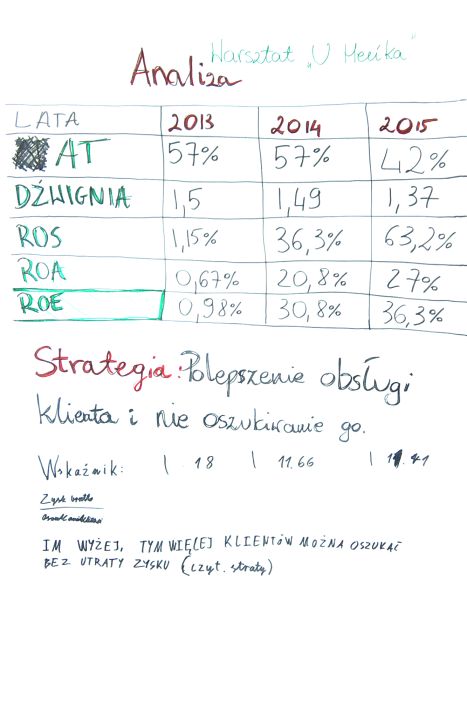 Warsztat „U Mećka"
Analiza
LATA 2013 2014 2015
AT 57% 57% 42%
DŹWIGNIA 1,5 1,49 1,37
ROS 1,15% 36,3% 63,2%
ROA 0,67% 20,8% 27%
ROE 0,98% 30,8% 36,3%
Strategia: Polepszenie obsługi
klienta i nie oszukiwanie go.
Wskaźnik: | 18 | 11.66 |
Zysk
IM WYŻEJ, TYM WIĘLEJ KLIENTÓW MOŻNA OSZUKAĆ
BEZ UTRATY ZYSKU (czyt. straty)